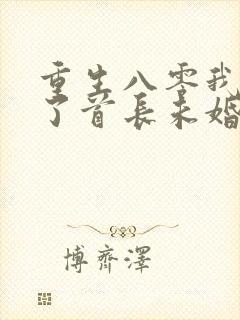 重生八零我
了首长未婚
博齊澤